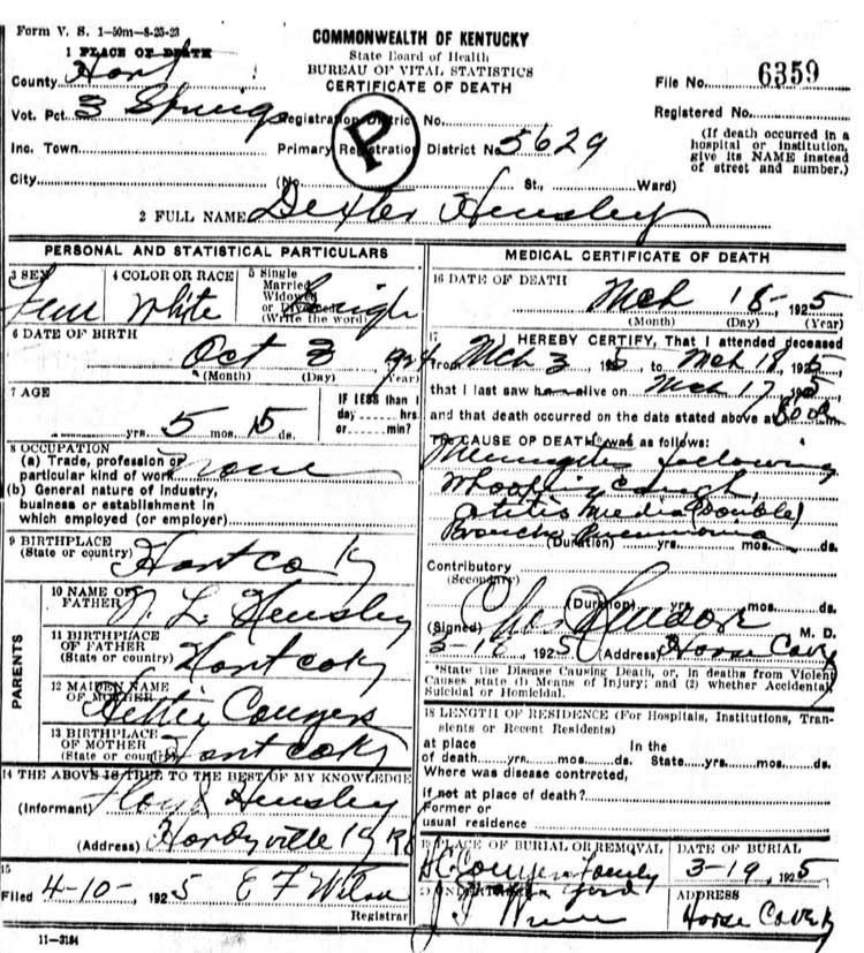 Form V. S. 1-50m-8-25-23
COMMONWEALTH OF KENTUCKY
State Board of Health
BUREAU OF VITAL STATISTICS
CERTIFICATE OF DEATH
1 PLACE OF DEATH
County Hart
File No. 6359
Vot. Pct. 3 Springs Registration District No.
Registered No.
Inc. Town. Primary Registration District No 5629
P
(If death occurred in a hospital or institution, give its NAME instead of street and number.)
City (No. St., Ward)
2 FULL NAME Dexter Hensley
PERSONAL AND STATISTICAL PARTICULARS
3 SEX Fem
4 COLOR OR RACE White
5 Single Married Widowed or Divorced (Write the word) Single
6 DATE OF BIRTH
Oct 3, 1924
(Month) (Day) (Year)
7 AGE
yrs. 5 mos. 15 ds.
IF LESS than 1 day hrs or min?
8 OCCUPATION
(a) Trade, profession or particular kind of work none
(b) General nature of industry, business or establishment in which employed (or employer)
9 BIRTHPLACE
(State or country) Hart co Ky
PARENTS
10 NAME OF FATHER L. Hensley
11 BIRTHPLACE OF FATHER (State or country) Hart co Ky
12 MAIDEN NAME OF MOTHER
13 BIRTHPLACE OF MOTHER (State or country) Hart co Ky
14 THE ABOVE IS TRUE TO THE BEST OF MY KNOWLEDGE
(Informant) Floyd Hensley
(Address) Hardyville Ky
15
Filed 4-10-, 1925 E F Wilson
Registrar
11-3184
MEDICAL CERTIFICATE OF DEATH
16 DATE OF DEATH
Mch 18-1925
(Month) (Day) (Year)
17 I HEREBY CERTIFY, That I attended deceased
from Mch 3, 1925, to Mch 18, 1925,
that I last saw h alive on Mch 17, 1925,
and that death occurred on the date stated above at m.
The CAUSE OF DEATH was as follows:
Meningitis following
Whooping Cough,
otitis media (Double)
Broncho Pneumonia
(Duration) yrs. mos. ds.
Contributory
(Secondary)
(Duration) yrs. mos. ds.
(Signed) M. D.
3-18, 1925 (Address) Horse Cave Ky
*State the Disease Causing Death, or, in deaths from Violent Causes state (1) Means of Injury; and (2) whether Accidental, Suicidal or Homicidal.
18 LENGTH OF RESIDENCE (For Hospitals, Institutions, Transients or Recent Residents)
at place of death yrs. mos. ds. In the State yrs. mos. ds.
Where was disease contracted,
if not at place of death?
Former or
usual residence
19 PLACE OF BURIAL OR REMOVAL
Family yard
DATE OF BURIAL
3-19, 1925
20 UNDERTAKER
ADDRESS
Horse Cave Ky